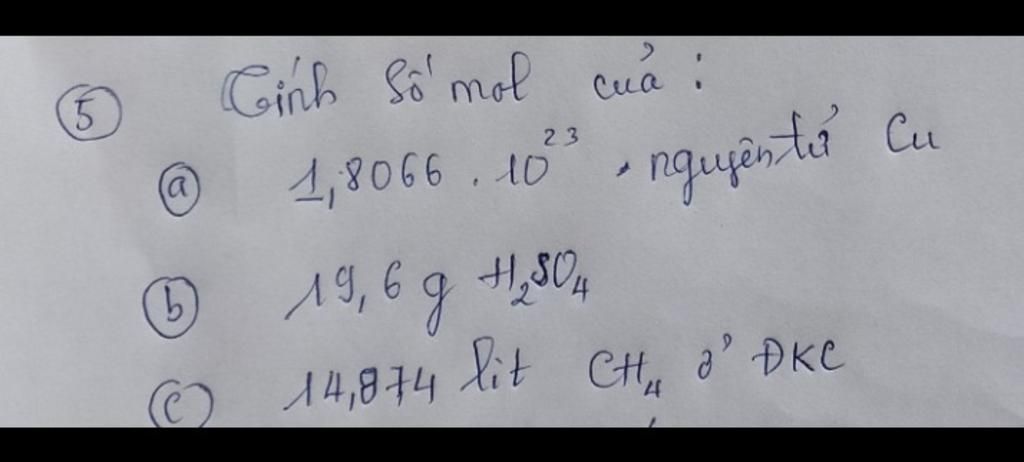 ⑤ Tính số mol của :
ⓐ 1,8066 . 10²³ . nguyên tử Cu
ⓑ 19,6 g H₂SO₄
ⓒ 14,874 lit CH₄ ở ĐKC